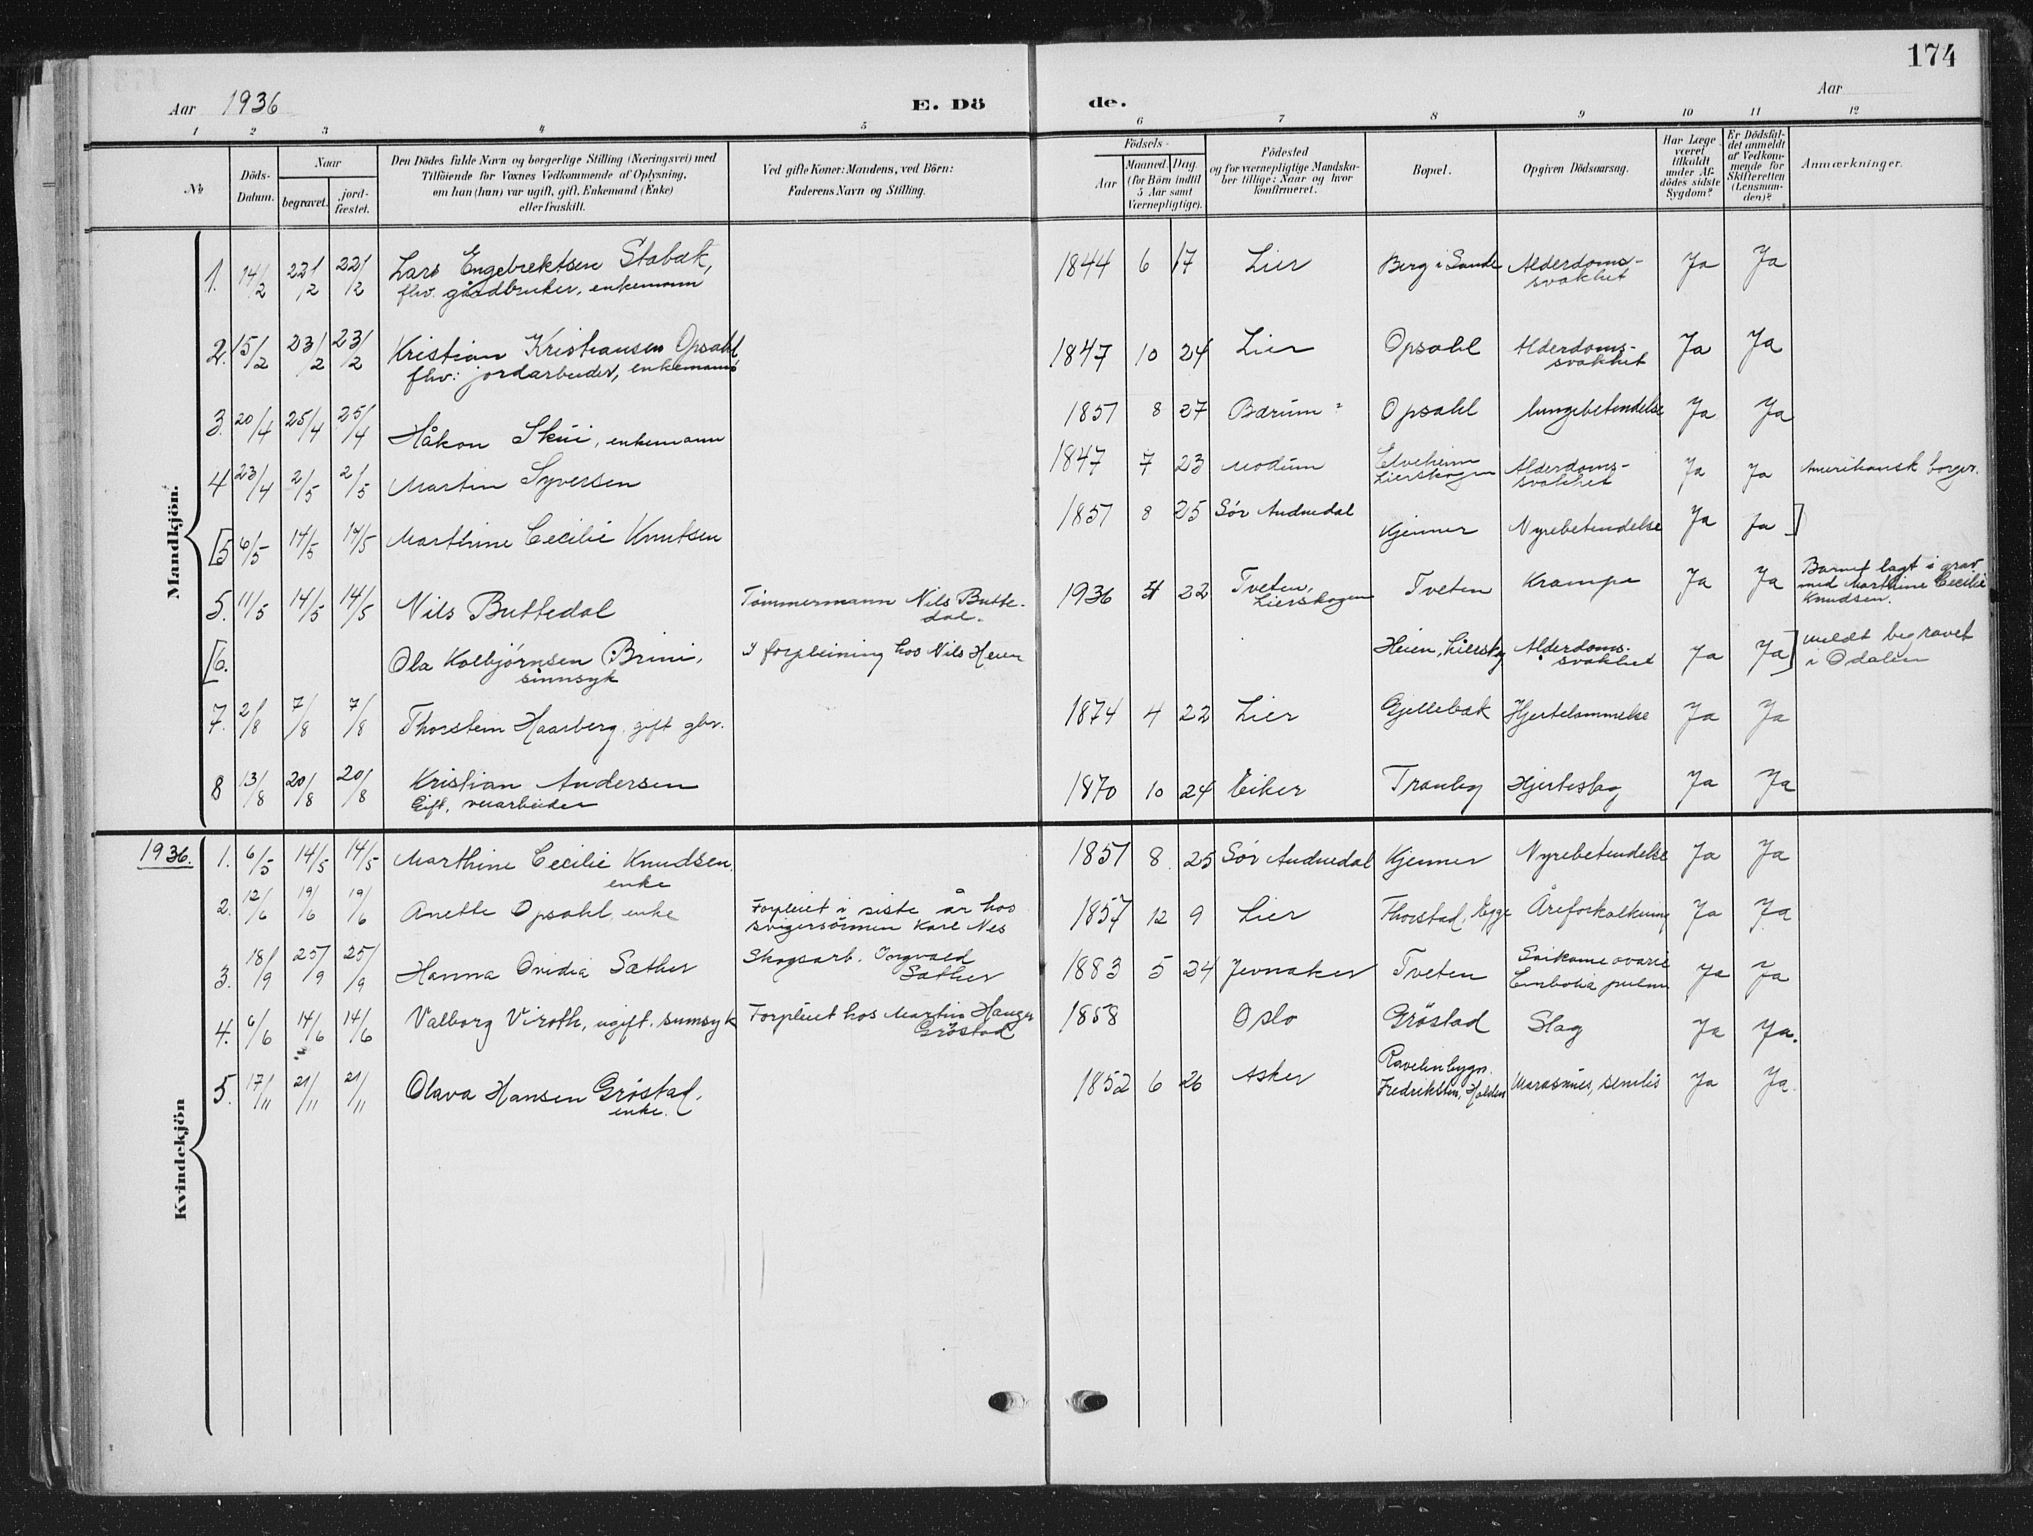 174
Aar 1936
E. Dö de.
Aar
1 2 3 4 5 6 7 8 9 10 11 12
No
Döds-Datum.
Naar
begravet.
jord-fæstet.
Den Dödes fulde Navn og borgerlige Stilling (Næringsvei) med
Tilföiende for Voxnes Vedkommende af Oplysning,
om han (hun) var ugift, gift, Enkemand (Enke)
eller fraskilt.
Ved gifte Koner: Mandens, ved Börn:
Faderens Navn og Stilling.
Födsels-
Aar
Maaned Dag
(for Börn indtil
5 Aar samt
Værnepligtige).
Födested
og for værnepligtige Mandska-
ber tillige: Naar og hvor
konfirmeret.
Bopæl.
Opgiven Dödsaarsag.
Har Læge
været
tilkaldt
under Af-
dödes sidste
Sygdom?
Er Dödsfal-
det anmeldt
af Vedkom-
mende for
Skifteretten
(Lensman-
den)?
Anmærkninger.
Mandkjön.
1. 14/2 22/2 22/2 Lars Engebrektsen Stabæk, 1844 6 17 Lier Berg i Sande Alderdoms- Ja Ja
fhv. gårdbruker, enkemann svakhet
2. 15/2 23/2 23/2 Kristian Kristiansen Opsahl 1847 10 24 Lier Opsahl Alderdoms- Ja Ja
fhv: jordarbeider, enkemann svakhet
3. 20/4 25/4 25/4 Håkon Skui, enkemann 1851 8 27 Bærum Opsahl lungebetendelse Ja Ja
4 23/4 2/5 2/5 Martin Syversen 1847 7 23 Modum Elveheim Alderdoms- Ja Ja Amerikansk borger.
Lierskogen svakhet
[5 6/5 14/5 14/5 Marthine Cecilie Knutsen 1851 8 25 Sör Audnedal Kjenner Nyrebetendelse Ja Ja ]
5. 11/5 14/5 14/5 Nils Buttedal Tömmermann Nils Butte- 1936 4 22 Tveten, Tveten Krampe Ja Ja Barnet lagt i grav
dal. Lierskogen med Marthine Cecilie
Knudsen.
[6. Ola Kolbjørnsen Brini, I forpleining hos Nils Heien Heien, Lierskog Alderdoms- Ja Ja] meldt begravet
sinnsyk svakhet i Odalen
7. 2/8 7/8 7/8 Thorstein Haarberg. gift gbr. 1874 4 22 Lier Gjellebæk Hjertelammelse Ja Ja
8 13/8 20/8 20/8 Kristian Andersen 1870 10 24 Eiker Tranby Hjerteslag Ja Ja
Gift, veiarbeider
1936.
Kvindekjön
1. 6/5 14/5 14/5 Marthine Cecilie Knudsen, 1851 8 25 Sör Audnedal Kjenner Nyrebetendelse Ja Ja
enke
2. 12/6 19/6 19/6 Anette Opsahl, enke Forpleiet i siste år hos 1857 12 9 Lier Thorstad, Egge Åreforkalkning Ja Ja
svigersönnen Karl Nes
3. 18/9 25/9 25/9 Hanna Ovidia Sæther Skogsarb. Ingvald 1883 5 24 Jevnaker Tveten Ja Ja
Sæther Embolia pulm
4. 6/6 14/6 14/6 Valborg Viroth, ugift. sinnsyk Forpleiet hos Martin Hauger 1858 Oslo Gröstad Slag Ja Ja.
Gröstad
5. 17/11 21/11 21/11 Olava Hansen Gröstad. 1852 6 26 Asker Ravelinbygn. Marasmus, senilis Ja Ja.
enke. Fredriksten, Halden